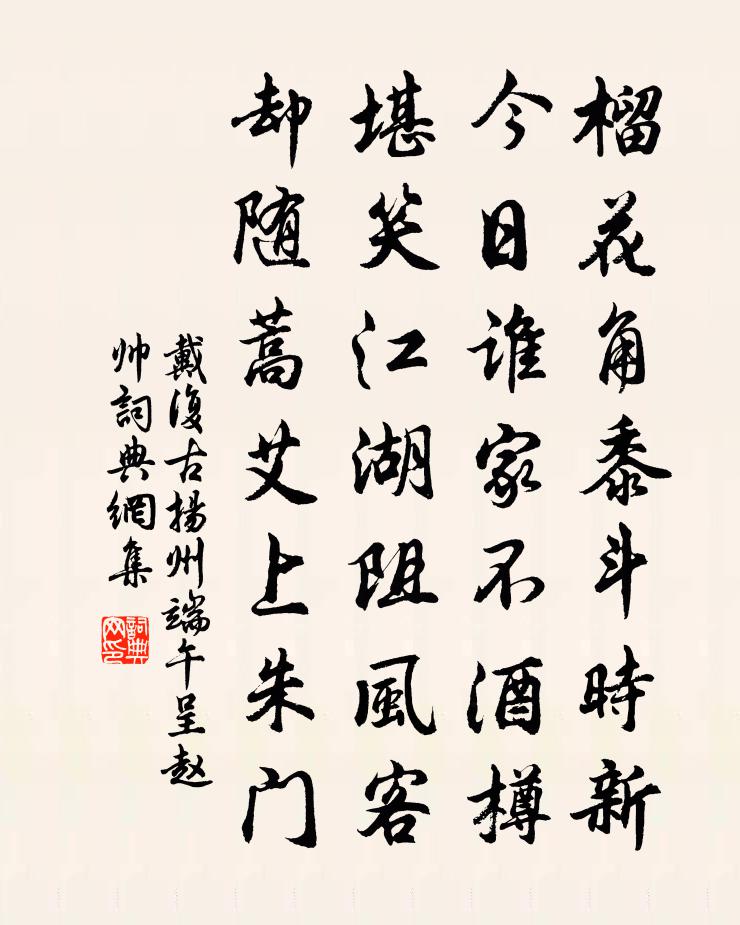 榴花角黍斗時新
今日谁家不酒樽
堪笑江湖阻風客
却随蒿艾上朱门
戴復古揚州端午呈赵
帅詞典網集
詞典网印